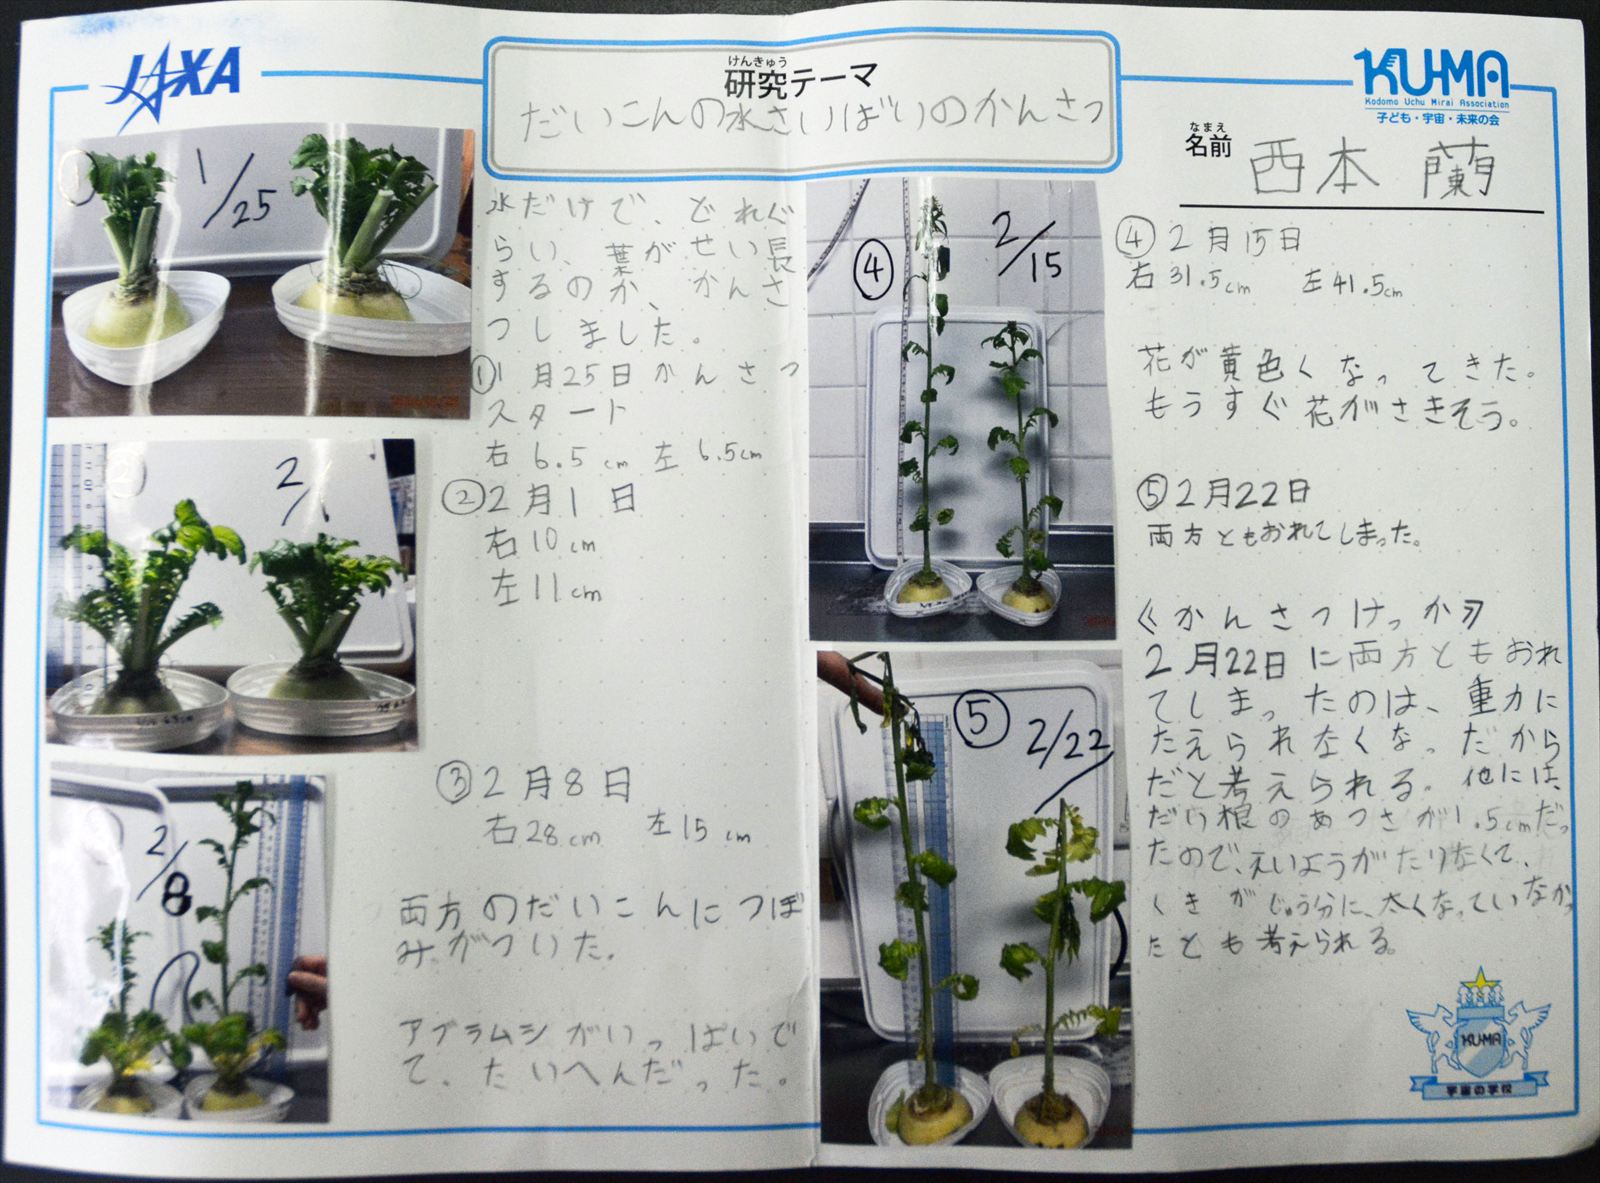 JAXA
けんきゅう
研究テーマ
だいこんの水さいばいのかんさつ
KU-MA
Kodomo Uchu Mirai Association
子ども・宇宙・未来の会
なまえ
名前 西本 蘭
① 1/25
水だけで、どれぐ
らい、葉がせい長
するのか、かんさ
つしました。
①1月25日かんさつ
スタート
右6.5cm 左6.5cm
② 2/1
②2月1日
右10cm
左11cm
2/8
③2月8日
右28cm 左15cm
両方のだいこんにつぼ
みがついた。
アブラムシがいっぱいで
て、たいへんだった。
④ 2/15
④2月15日
右31.5cm 左41.5cm
花が黄色くなってきた。
もうすぐ花がさきそう。
⑤ 2/22
⑤2月22日
両方ともおれてしまった。
《かんさつけっか》
2月22日に両方ともおれ
てしまったのは、重力に
たえられなくなっだから
だと考えられる。他には、
だい根のあつさが1.5cmだっ
たので、えいようがたりなくて、
くきがじゅう分に、太くなっていなかっ
たとも考えられる。
KU-MA
宇宙の学校